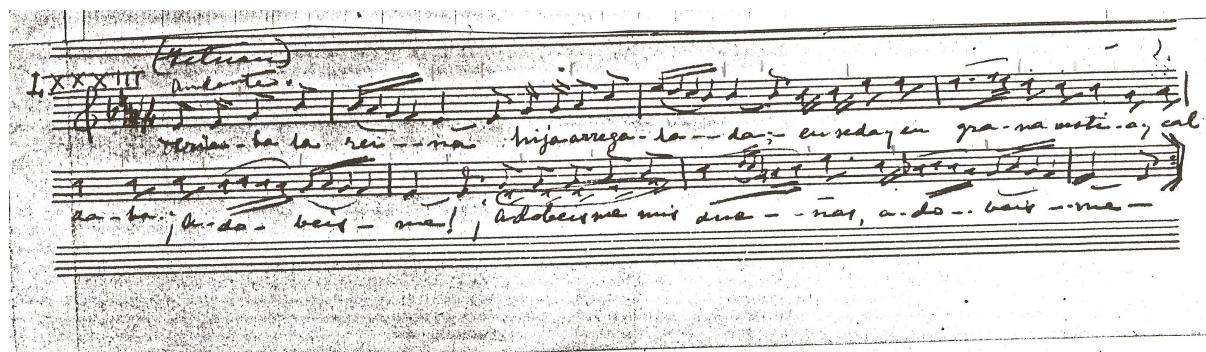 (Tetuan)
LXXXIII Andante.
la rei--na hija arrega-la--da;- en seda y en gra-na vesti-a y cal
za-ba: ¡a-do-- beis- me! ¡adobeisme mis due--ñas, a-do--beis--me-